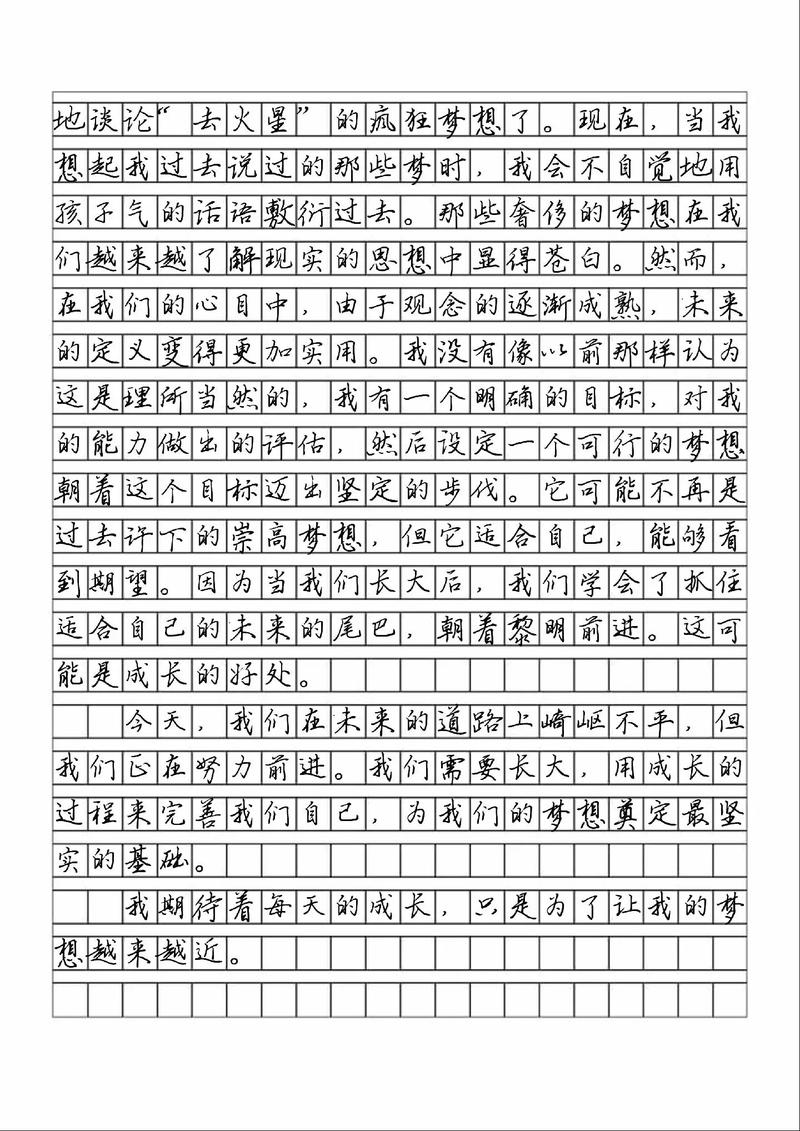 地谈论“去火星”的疯狂梦想了。现在，当我
想起我过去说过的那些梦时，我会不自觉地用
孩子气的话语敷衍过去。那些奢侈的梦想在我
们越来越了解现实的思想中显得苍白。然而，
在我们的心目中，由于观念的逐渐成熟，未来
的定义变得更加实用。我没有像以前那样认为
这是理所当然的，我有一个明确的目标，对我
的能力做出的评估，然后设定一个可行的梦想
朝着这个目标迈出坚定的步伐。它可能不再是
过去许下的崇高梦想，但它适合自己，能够看
到期望。因为当我们长大后，我们学会了抓住
适合自己的未来的尾巴，朝着黎明前进。这可
能是成长的好处。
今天，我们在未来的道路上崎岖不平，但
我们正在努力前进。我们需要长大，用成长的
过程来完善我们自己，为我们的梦想奠定最坚
实的基础。
我期待着每天的成长，只是为了让我的梦
想越来越近。